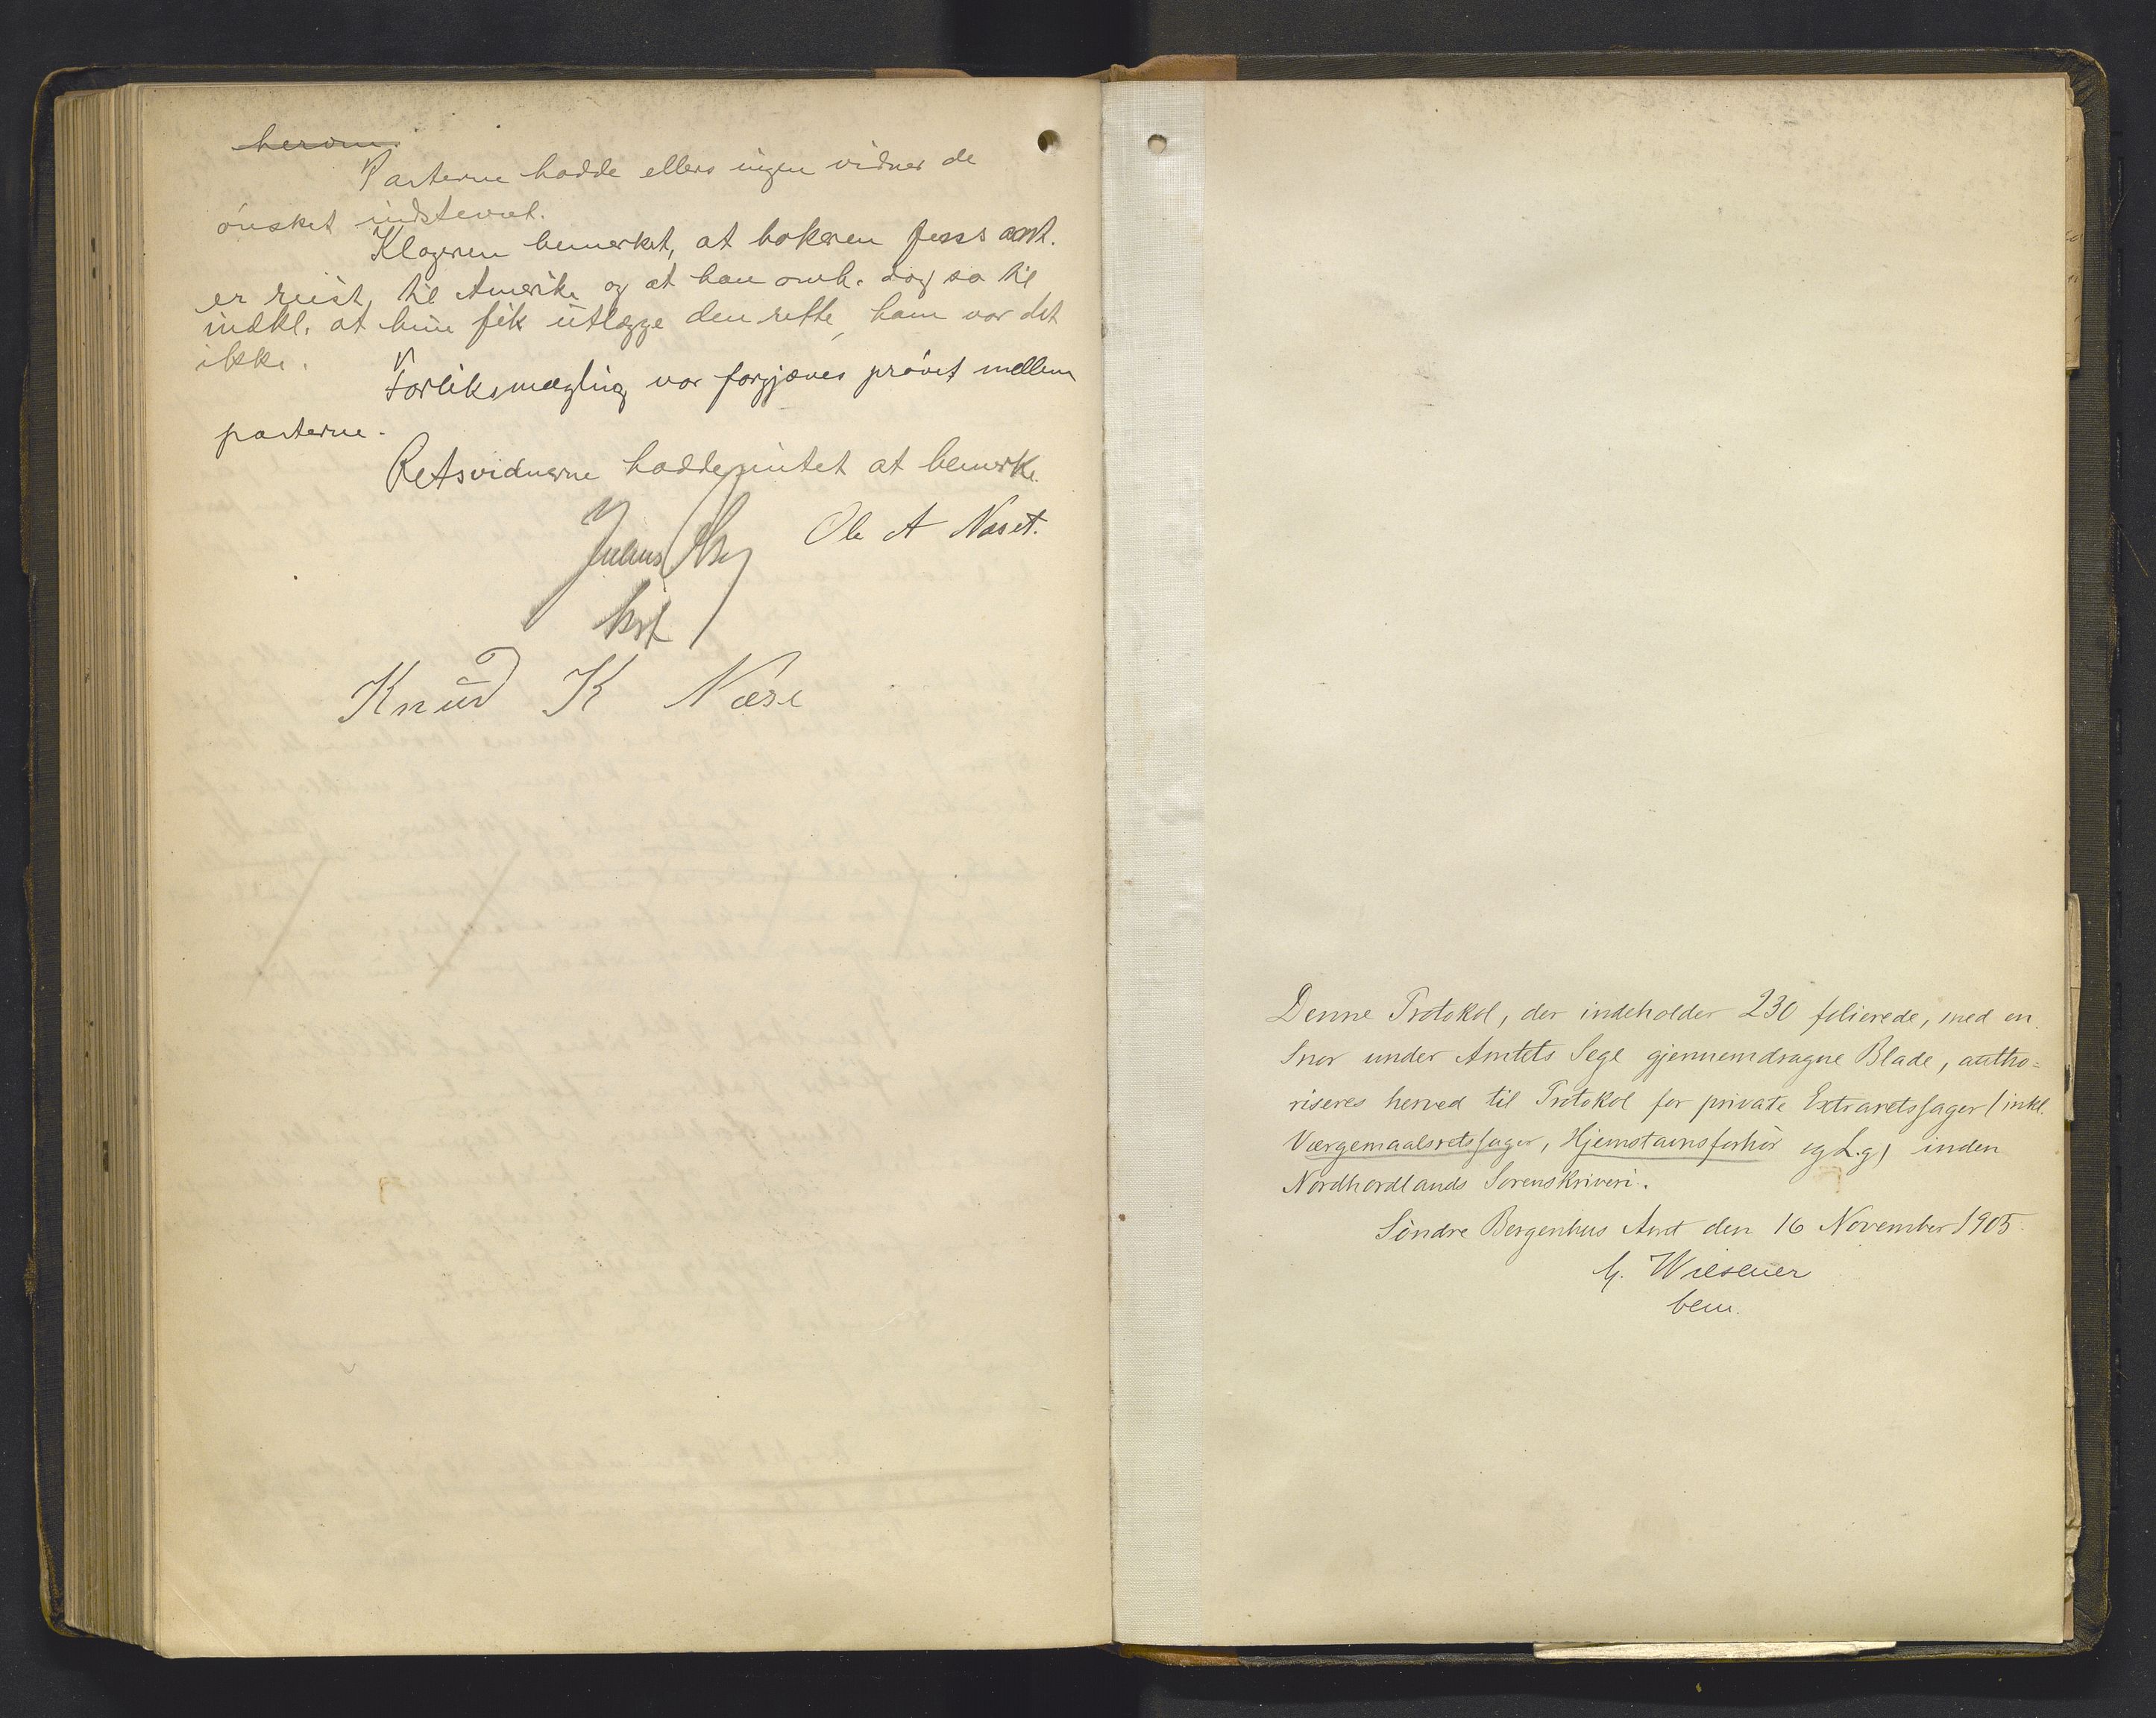 herom.
Parterne hadde ellers ingen vidner de
ønsket indstevnet.
Klageren bemerket, at bokeren Jens
er reist til Amerika og at han dog sa til
indkl. at hun fik utlægge den rette, ham var det
ikke.
Forliksmægling var forgjæves prøvet mellem
parterne.
Retsvidnerne hadde intet at bemerke.
Ole A Naset.
Julius
kst
Knud K Næse
Denne Protokol, der indeholder 230 folierede, med en
Snor under Amtets Segl gjennemdragne Blade, autho=
riseres herved til Protokol for private Extraretssager (inkl.
Værgemaalsretssager, Hjemstavnsforhør og L.g) inden
Nordhordlands Sorenskriveri.
Søndre Bergenhus Amt den 16 November 1905.
G. Wiesener
bem.